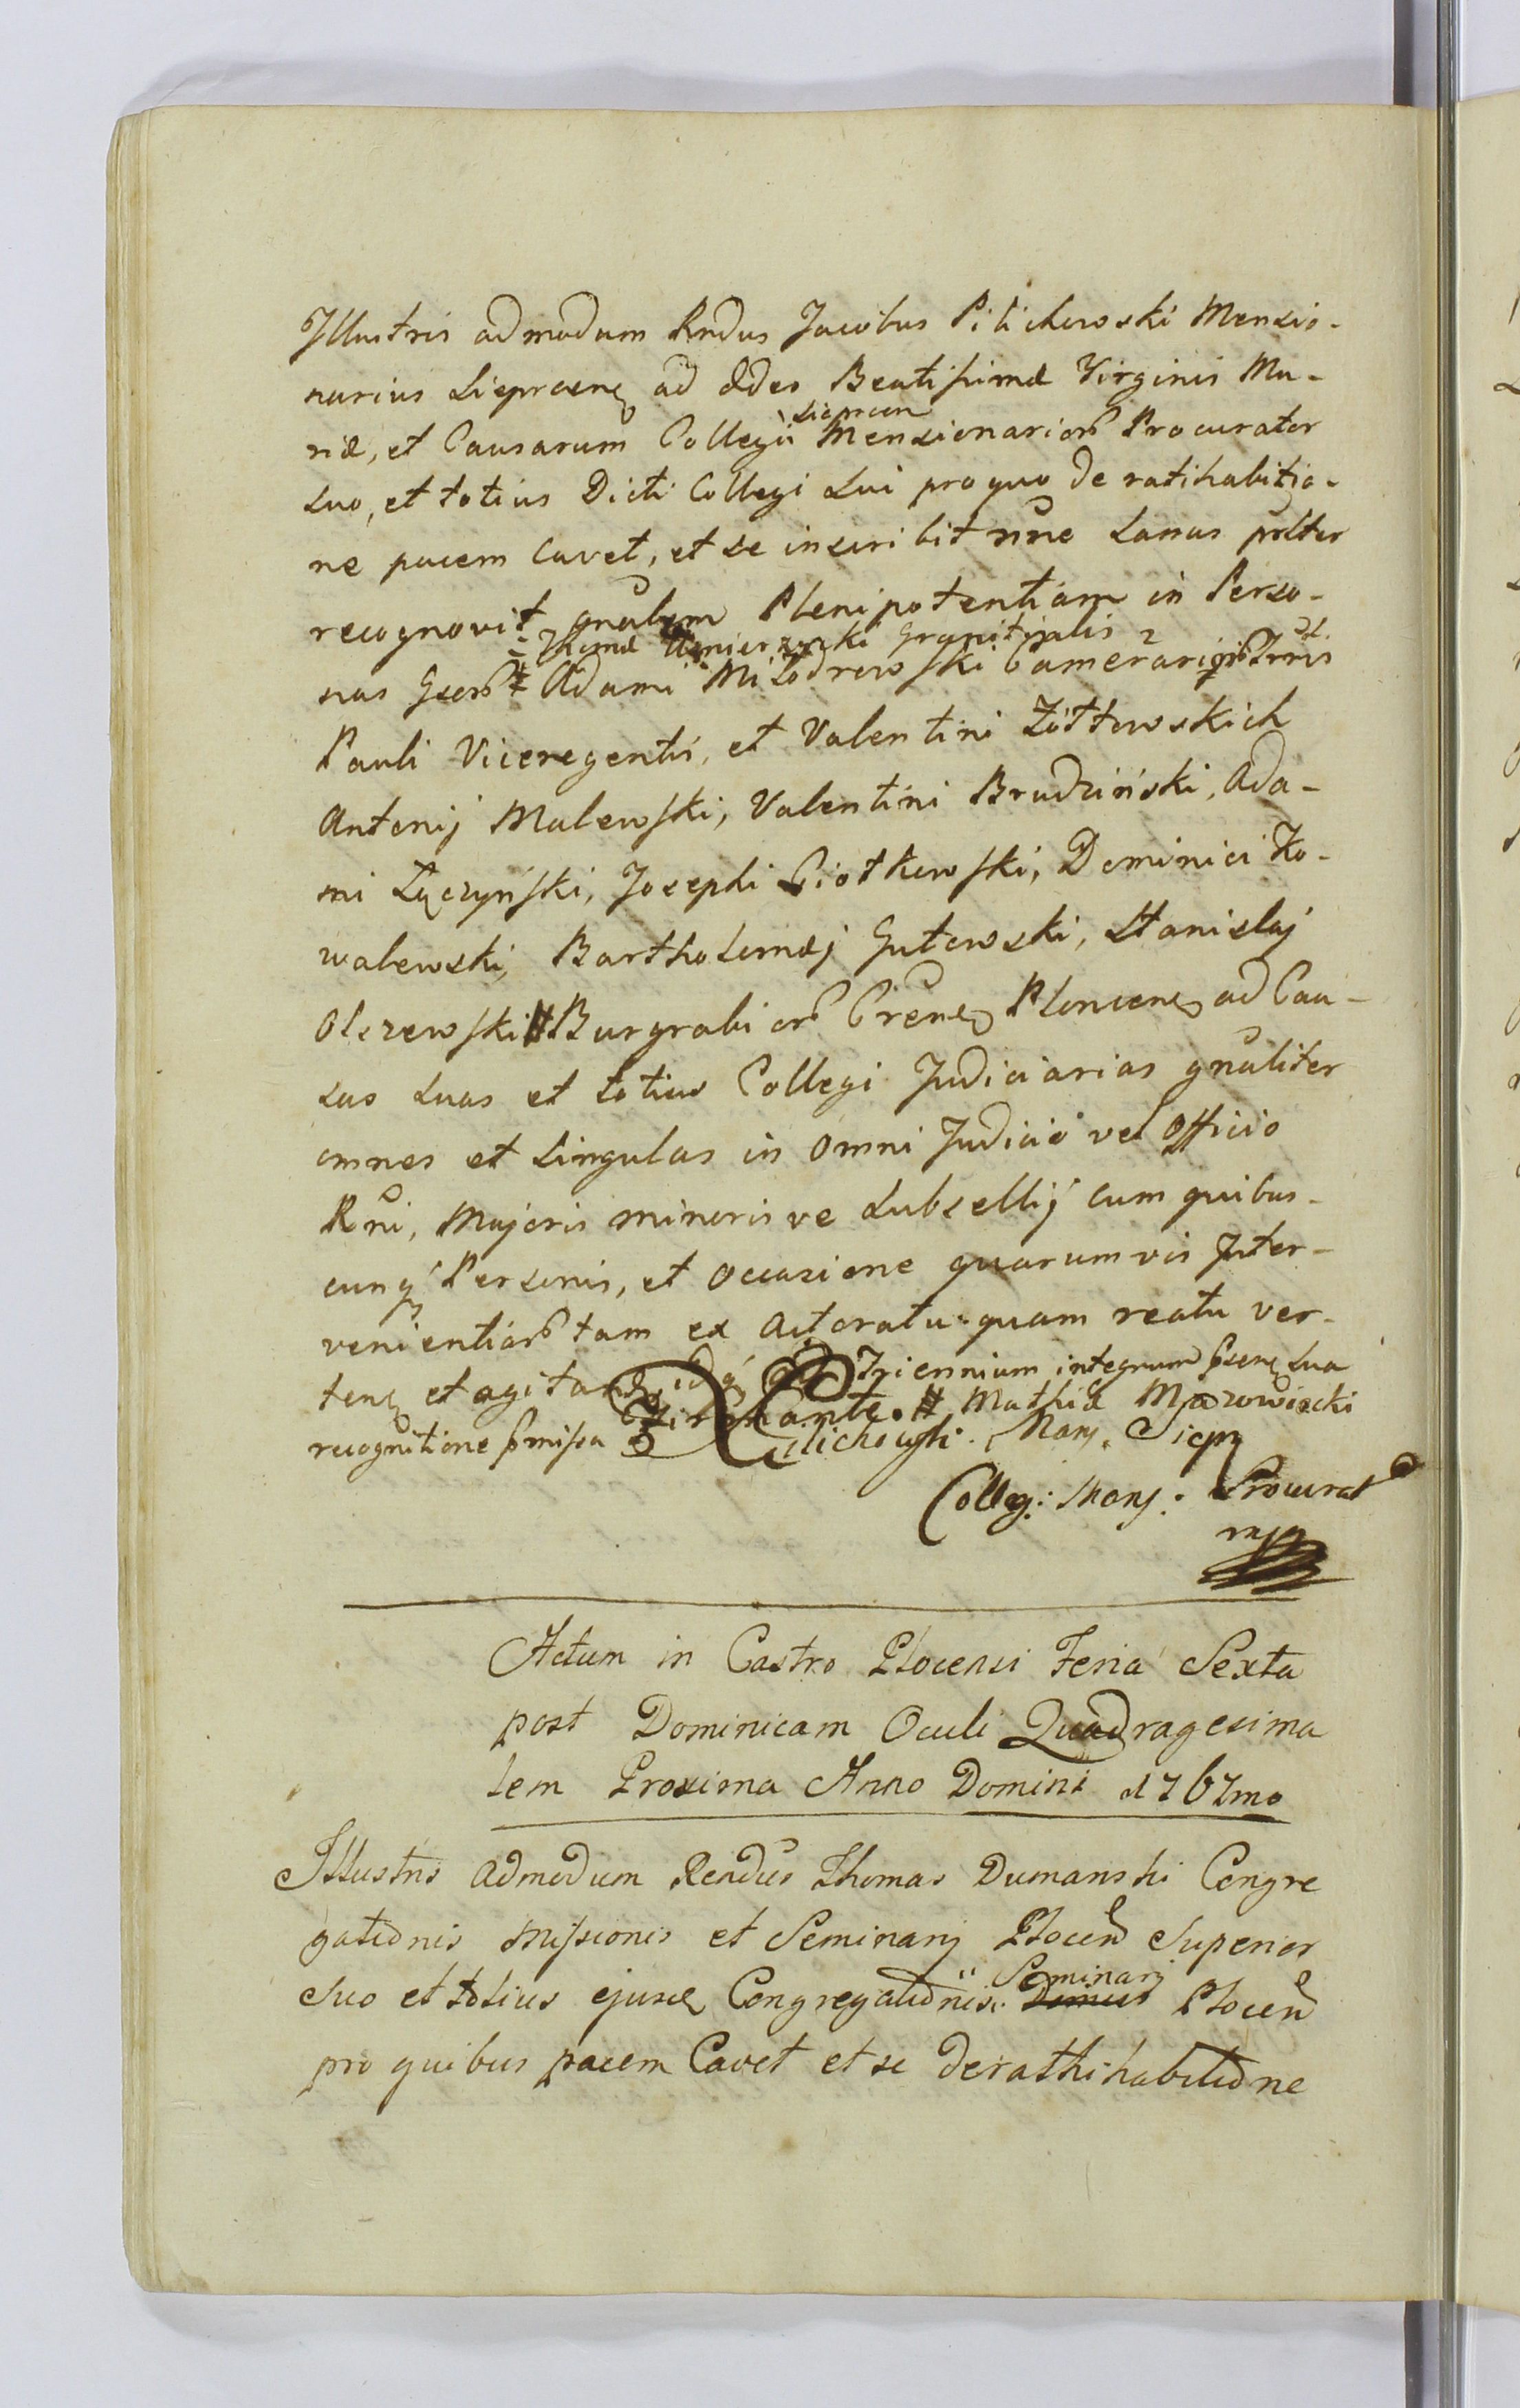 Illustris admodum Rndus Jacobus Pilichowski Mensio-
narius Sieprcens ad ædes Beatissimæ Virginis Ma-
riæ, et Causarum Collegii Sieprcen Mensionarior Procurator
suo, et totius Dicti Collegi sui pro quo de ratihabitio-
ne pacem cavet, et se inscribit nne sanus pblter
recognovit gnalem Plenipotentiam in Perso-
Granitialis
nas Gseor Adami Miłodrowski Camerarior Trris
Pauli Viceregentis, et Valentini Żółtowskich
Antonij Malewski, Valentini Brudziński, Ada-
mi Łączyński, Josephi Piotkowski, Dominici Ko-
walewski, Bartholomæj Gutowski, Stanislaj
Olszewski # Burgrabior Crens Ploncens ad Cau-
sas suas et totius Collegi Judiciarias gnaliter
omnes et singulas in omni Judicio vel Officio
Rni, Majoris minoris ve subsellij cum quibus-
cunq Personis, et occasione quarumvis Inter-
venientiar tam ex actoratu quam reatu ver-
tens et agitan Triennium integrum psens sua
recognitione pmissa # Mathiæ Mazowiecki
Pilichowski. Mans. Siepr
Colleg: Mans: Procurat
mp
Actum in Castro Plocensi Feria Sexta
post Dominicam Oculi Quadragesima
lem Proxima Anno Domini 1767mo
Illustris admodum Rendus Thomas Dumanski Congre
gationis Missionis et Seminarij Plocen Superior
suo et totius ejusd Congregationis Seminarj Domus Plocen
pro quibus pacem Cavet et se derathihabitione